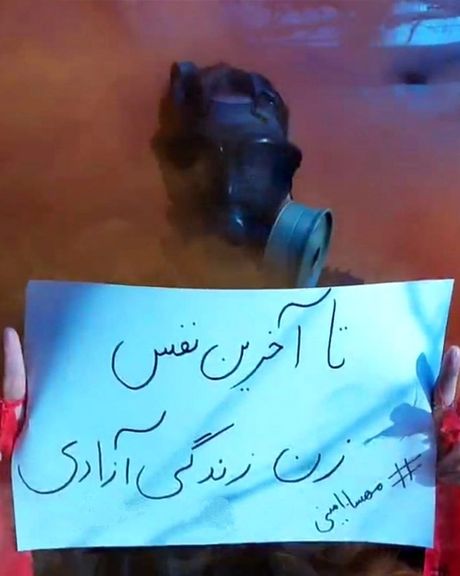 تا آخرین نفس
زن زندگی آزادی
#مهساامینی